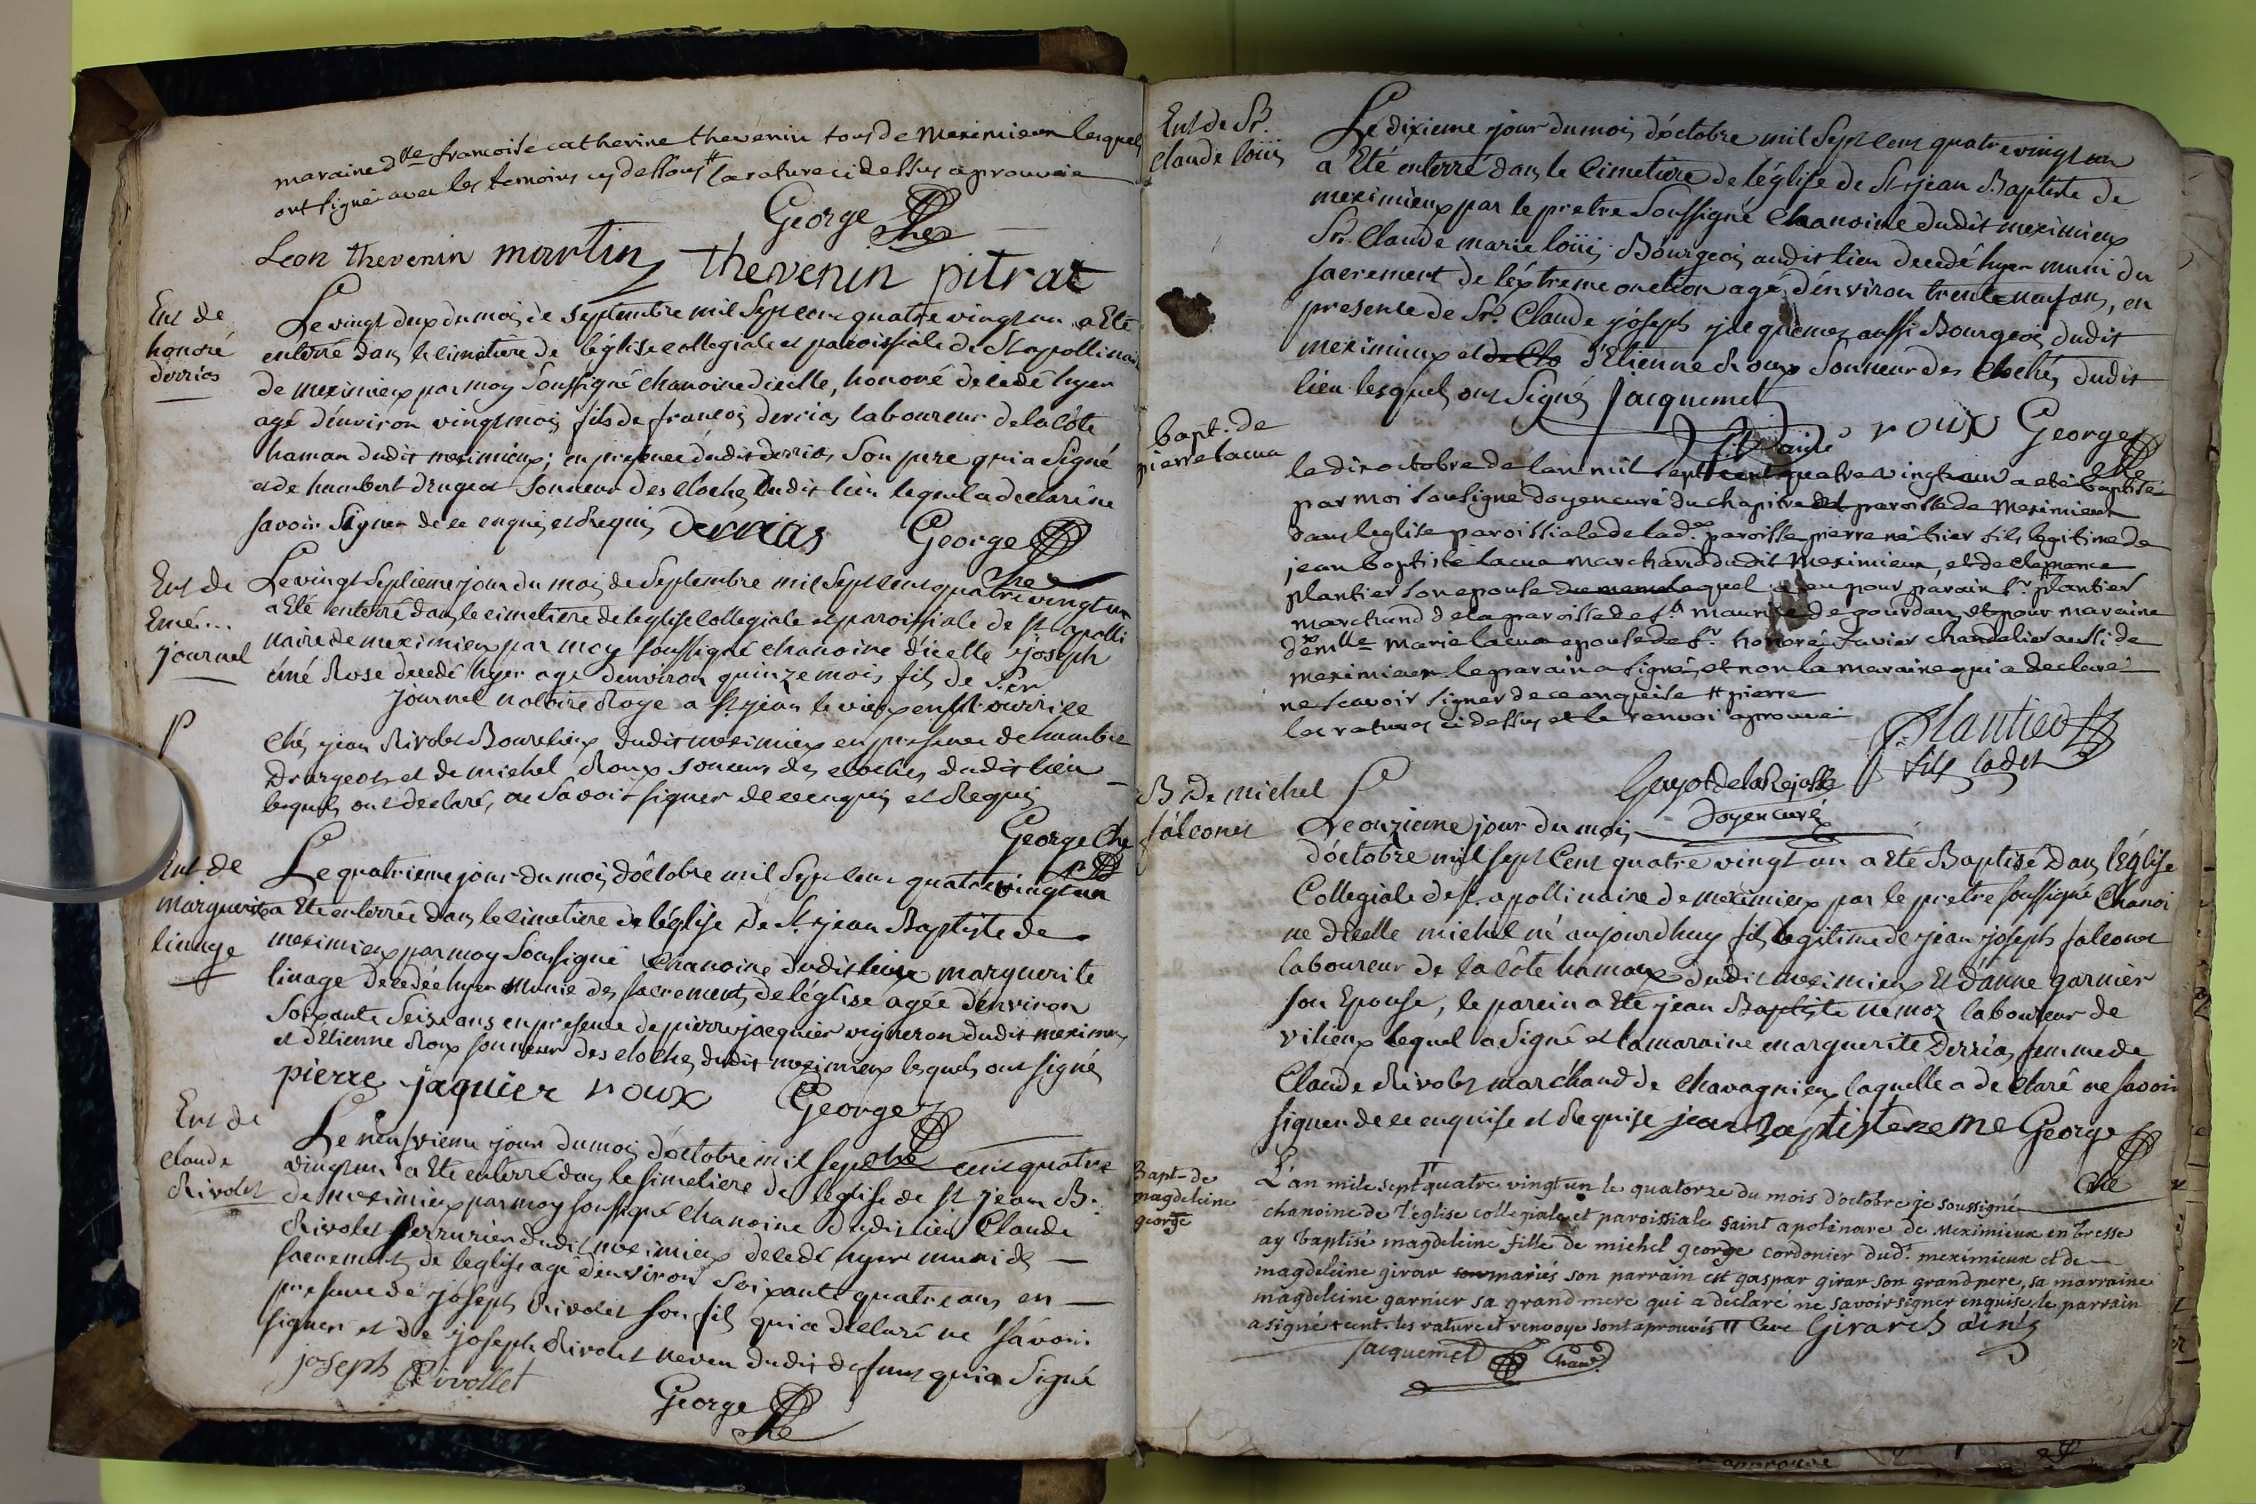 maraine dlle francoise catherine thevenin tous de Meximieux lesquels
ont signé avec les temoins cy dessous # la rature ci dessus aprouvée
George Che
Leon thevenin martin thevenin pitrat
Ent de
honoré
derrias
Le vingt deux du mois de Septembre mil Sept cent quatre vingt un a Eté
enterré dans le cimetiere de l'église collegiale et paroissiale de St apollinaire
de meximieux par moy soussigné chanoine d'icelle, honoré decedé hyer
agé d'environ vingt mois fils de francois derrias laboureur de la côte
haman dudit meximieux; en presence dudit derrias Son pere qui a signé
et de humbert drugeot Sonneur des cloches dudit lieu lequel a declaré ne
savoir signer de ce enquis et Requis derrias George Che
Ent de
Emé...
journel
Le vingt septieme jour du mois de Septembre mil Sept cent quatre vingt un
a Eté enterré dans le cimetiere de l'eglise Collegiale et paroissiale de St apolli
naire de meximieux par moy soussigné chanoine d'icelle joseph
émé Rose decedé hyer agé d'environ quinze mois fils de Sr
journel notoire Roye a St jean le vieux en nourrice
chés jean Rivolet Bourelier dudit meximieux en presence de humbert
Drugeot et de michel Roux sonneurs des cloches dudit lieu
lesquels ont declaré, ne Savoir signer de ce enquis et Requis
George Che
Ent de
marguerite
linage
Le quatrieme jour du mois d'octobre mil Sept cent quatre vingt un
a Eté enterrée dans le cimetiere de l'église de St jean Baptiste de
meximieux par moy Soussigné Chanoine dudit lieu marguerite
linage decedée hyer munie des sacrements de l'église agée d'environ
Soixante Seize ans en presence de pierre jacquier vigneron dudit meximieux
et d'Etienne Roux sonneur des cloches dudit meximieux lesquels ont signé
pierre jaquier roux George
Che
Ent de
claude
Rivolet
Le neufvieme jour du mois d'octobre mil sept cent quatre
vingt un a Eté enterré dans le simetiere de l'église de St jean B.
de meximieux par moy soussigné chanoine dudit lieu Claude
Rivolet Serrurier dudit meximieux decedé hyer muni des
sacrements de l'eglise agé d'environ Soixante quatre ans en
presence de joseph Rivolet son fils qui a declaré ne savoir
signer et de joseph Rivolet neveu dudit defunt qui a Signé
joseph Rivollet
George Che
Ent de Sr.
claude loüis
Le dixieme jour du mois d'octobre mil Sept Cent quatre vingt un
a Eté enterré dans le Cimetiere de l'église de St jean Baptiste de
meximieux par le pretre Soussigné Chanoine dudit meximieux
Sr. Claude marie loüis Bourgeois audit lieu decedé hyer muni du
sacrement de l'éxtreme onction agé d'environ trente neuf ans, en
presence de Sr. Claude jóseph jacquemet aussi Bourgeois dudit
meximieux et de Clo d'Etienne Roux Sonneur des Cloches dudit
lieu lesquels ont Signé Jacquemet
roux George Che
bapt. de
pierre lacua
le dix octobre de l'an mil sept cent quatre vingt un a eté baptisé
par moi sousigné doyen curé du chapitre et paroisse de Meximieux
dans leglise paroissiale de lad. paroisse pierre né hier fils legitime de
jean baptiste lacua marchand dudit Meximieux, et de clemence
plantier son epouse du meme lequel a eu pour parain Sr. # plantier
marchand de la paroisse de St. maurice de gourdan, et pour maraine
demlle marie lacua epouse de Sr. honoré Favier chandelier aussi de
meximieux le parain a signé, et non la maraine qui a declaré
ne scavoir signer de ce enquise # pierre
les ratures ci dessus et le renvoi aprouvé
Plantier
fils cadet
Guyot de la Rejasse
Doyen curé
B. de michel
falconet
Le onzieme jour du mois
d'octobre mil sept Cent quatre vingt un a Eté Baptisé dans l'Église
Collegiale de St. apollinaire de meximieux par le pretre soussigné Chanoi
ne d'icelle michel né aujourd'huy fils legitime de jean joseph falconet
laboureur de la côte haman dudit meximieux et d'anne garnier
son Epouse, le parein a Eté jean Baptiste nemoz laboureur de
vilieux lequel a Signé et la maraine marguerite Derrias femme de
Claude Rivolet marchand de Chavagnieu laquelle a declaré ne savoir
signer de ce enquise et Requise jean Baptiste neme George
Che
Bapt. de
magdeleine
george
L'an mile sept # quatre vingt un le quatorze du mois d'octobre je soussigné
chanoine de l'eglise collegiale et paroissiale saint apolinare de Meximieux en bresse
ay baptisé magdeleine fille de michel george cordonier dud. meximieux et de
magdeleine girar son mariés son parrain est gaspar girar son grand pere, sa marraine
magdeleine garnier sa grand mere qui a declaré ne savoir signer enquise, le parrain
a signé # cent. les rature et renvoye sont aprouvés Girard ainé
Jacquemet Chan.